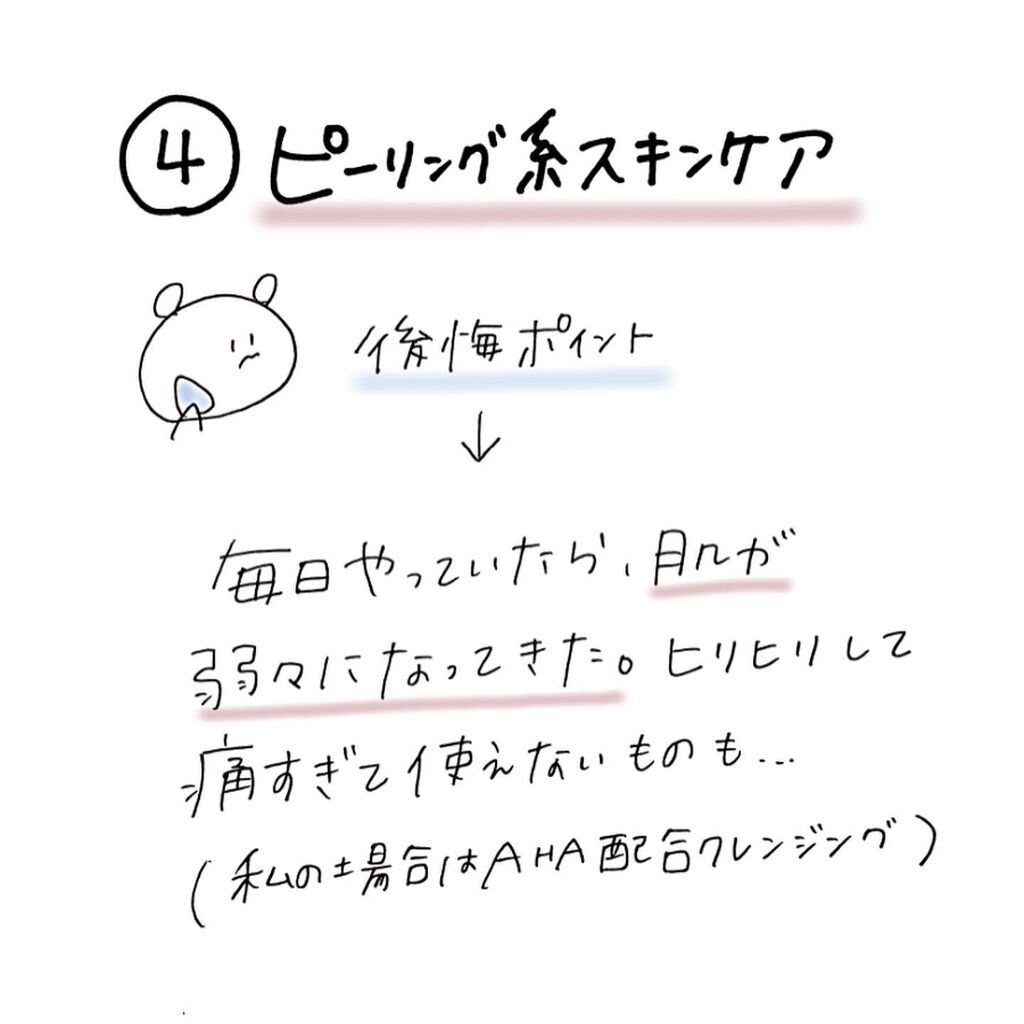 ④ ピーリング系スキンケア
後悔ポイント
↓
毎日やっていたら、肌が
弱々になってきた。ヒリヒリして
痛すぎて使えないものも...
(私の場合はAHA配合クレンジング)